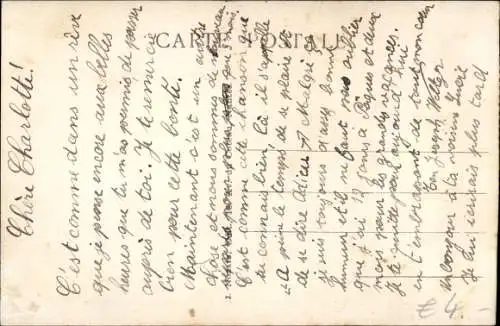 CARTE POSTALE
Chère Charlotte!
C'est comme dans un rêve
que je pense encore aux belles
heures que tu m'as permis de passer
auprès de toi. Je te remercie
bien pour cette bonté.
Maintenant c'est un autre
chose et nous sommes de nouveau
C'est comme cette chanson que
tu connais bien, là il s'appelle
"A peine le temps de se plaire et
de se dire Adieu" Malgré ça
je suis toujours d'une bonne
humeur et il ne faut pas oublier
que j'ai 12 jours à Pâques et deux
mois pour les grandes vacances.
Je te quitte pour aujourd'hui
en t'embrassant de tout mon cœur
Ton
Un bonjour à ta Lucie
Je lui écrirais plus tard
€ 4.-